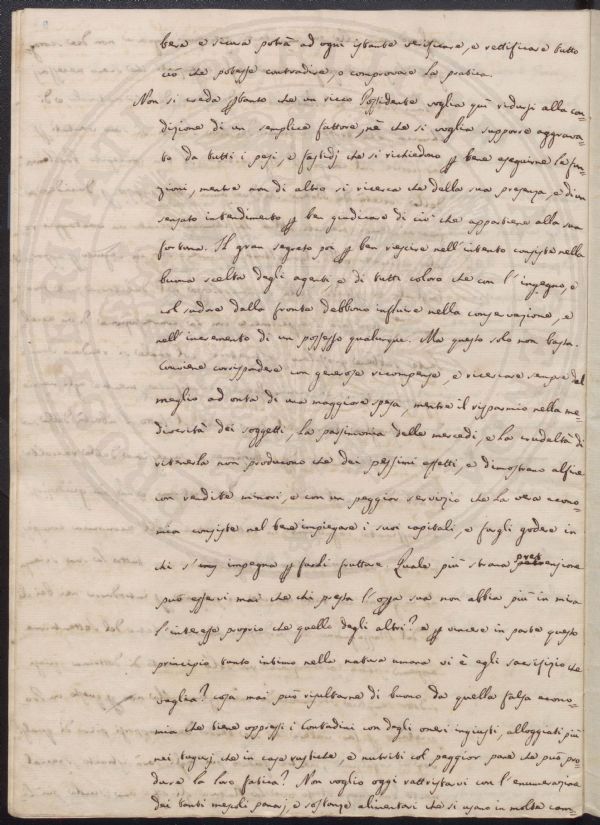 bera e sicura potrà ad ogni istante verificare, e rettificare tutto
ciò che potesse contradire, o comprovare la pratica.
Non si creda pertanto che un ricco Possidente voglia qui ridursi alla con=
dizione di un semplice fattore, nè che si voglia supporre aggrava=
to da tutti i pesi, e fastidj che si richiedono per bene eseguirne le fun=
zioni, mentre non di altro si ricerca che della sua presenza, e di un
sensato intendimento per ben giudicare di ciò che appartiene alla sua
fortuna. Il gran segreto poi per ben riescire nell'intento consiste nella
buona scelta degli agenti, e di tutti coloro che con l'ingegno, e
col sudore della fronte debbono influire nella conservazione, e
nell'incremento di un possesso qualunque. Ma questo solo non basta.
Conviene corrispondere con generose ricompense, e ricercare sempre del
meglio ad onta di una maggiore spesa, mentre il risparmio nella me=
diocrità dei soggetti, la parsimonia delle mercedi, e la crudeltà di
ritenerla non producono che dei pessimi effetti, e dimostrano alfine
con rendite minori, e con un peggior servizio che la vera econo=
mia consiste nel bene impiegare i suoi capitali, e fargli godere in
chi s'impegna per farli fruttare. Quale più strana pretensione
può esservi mai che chi presta l'opra sua non abbia più in mira
l'interesse proprio che quello degli altri? e per vincere in parte questo
principio tanto intimo nella natura umana vi è egli sacrifizio che
vaglia? cosa mai può risultarne di buono da quella falsa econo=
mia che tiene oppressi i Contadini con degli oneri ingiusti, alloggiati più
nei tugurj, che in case rustiche, e nutriti col peggior pane che può pro=
durre la loro fatica? Non voglio oggi rattristarvi con l'enumerazione
dei tanti mescoli panarj, e sostanze alimentari che si usano in molte cam=